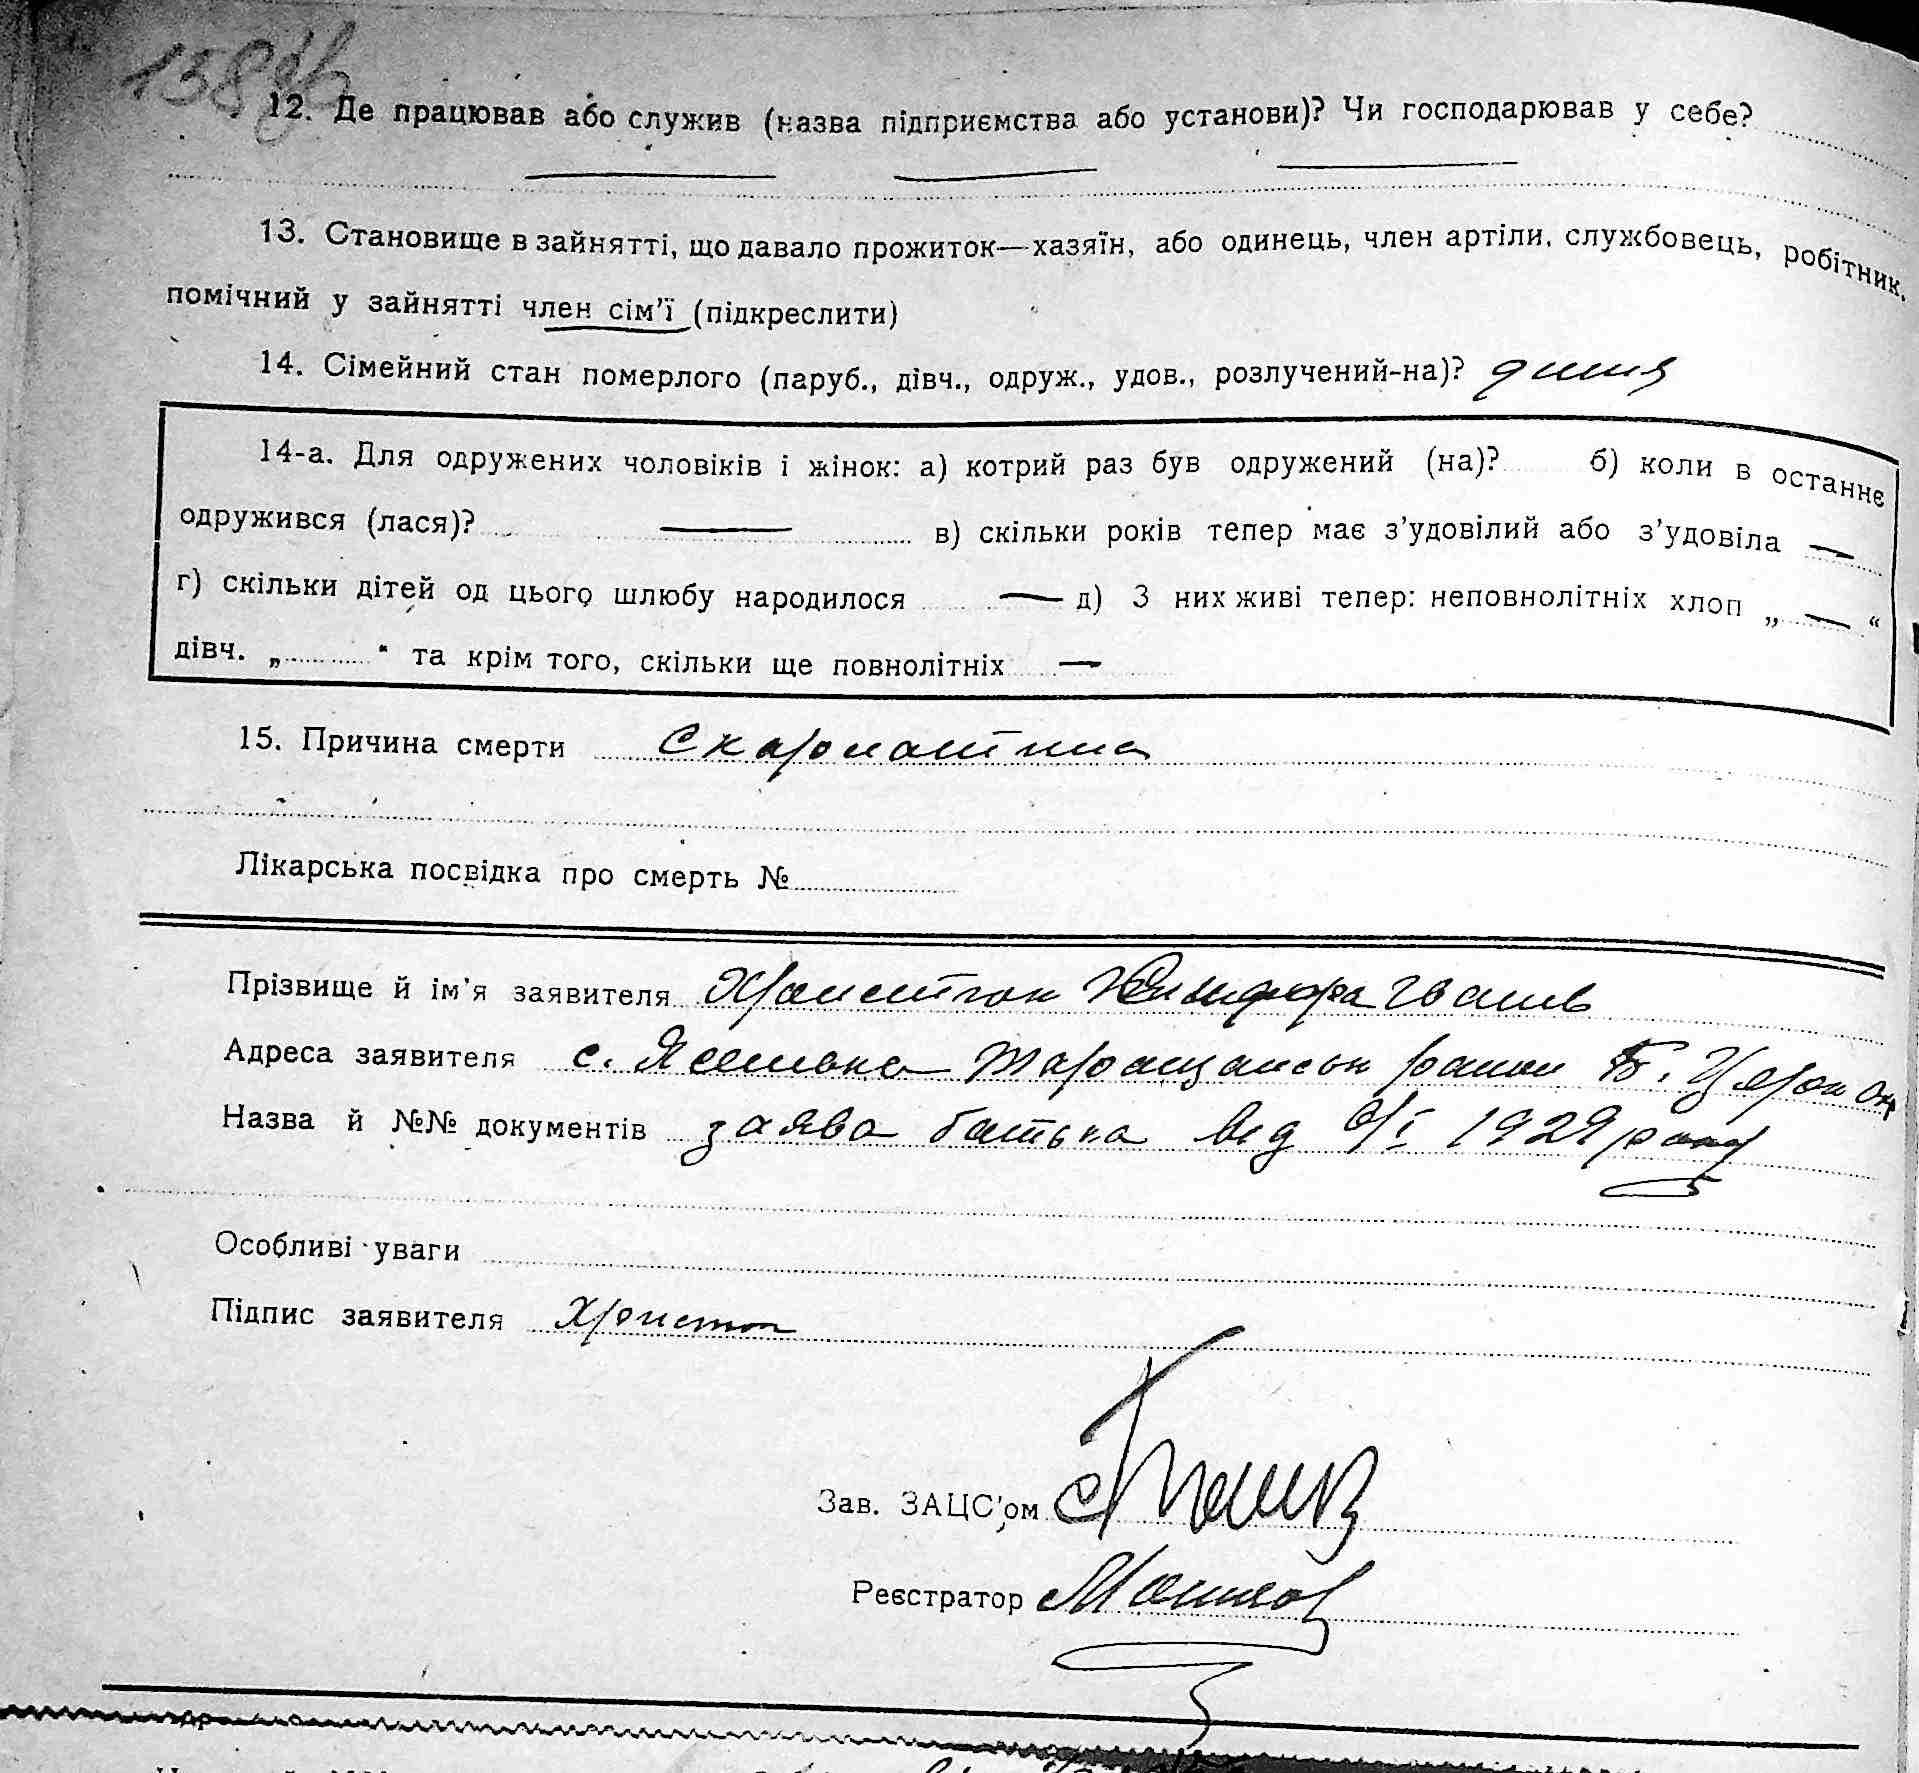 138
12. Де працював або служив (назва підприємства або установи)? Чи господарював у себе?
13. Становище в зайнятті, що давало прожиток—хазяїн, або одинець, член артіли, службовець, робітник,
помічний у зайнятті член сім'ї (підкреслити)
14. Сімейний стан померлого (паруб., дівч., одруж., удов., розлучений-на)? дитя
14-а. Для одружених чоловіків і жінок: а) котрий раз був одружений (на)? б) коли в останнє
одружився (лася)? — в) скільки років тепер має з'удовілий або з'удовіла —
г) скільки дітей од цього шлюбу народилося — д) З них живі тепер: неповнолітніх хлоп „ — “
дівч. „ “ та крім того, скільки ще повнолітніх —
15. Причина смерти Скарлатина
Лікарська посвідка про смерть №
Прізвище й ім'я заявителя
Адреса заявителя с. Ясенівка Таращанськ району Б. Церк ок
Назва й №№ документів заява батька від 1929 року
Особливі уваги
Підпис заявителя
Зав. ЗАЦС'ом
Реєстратор